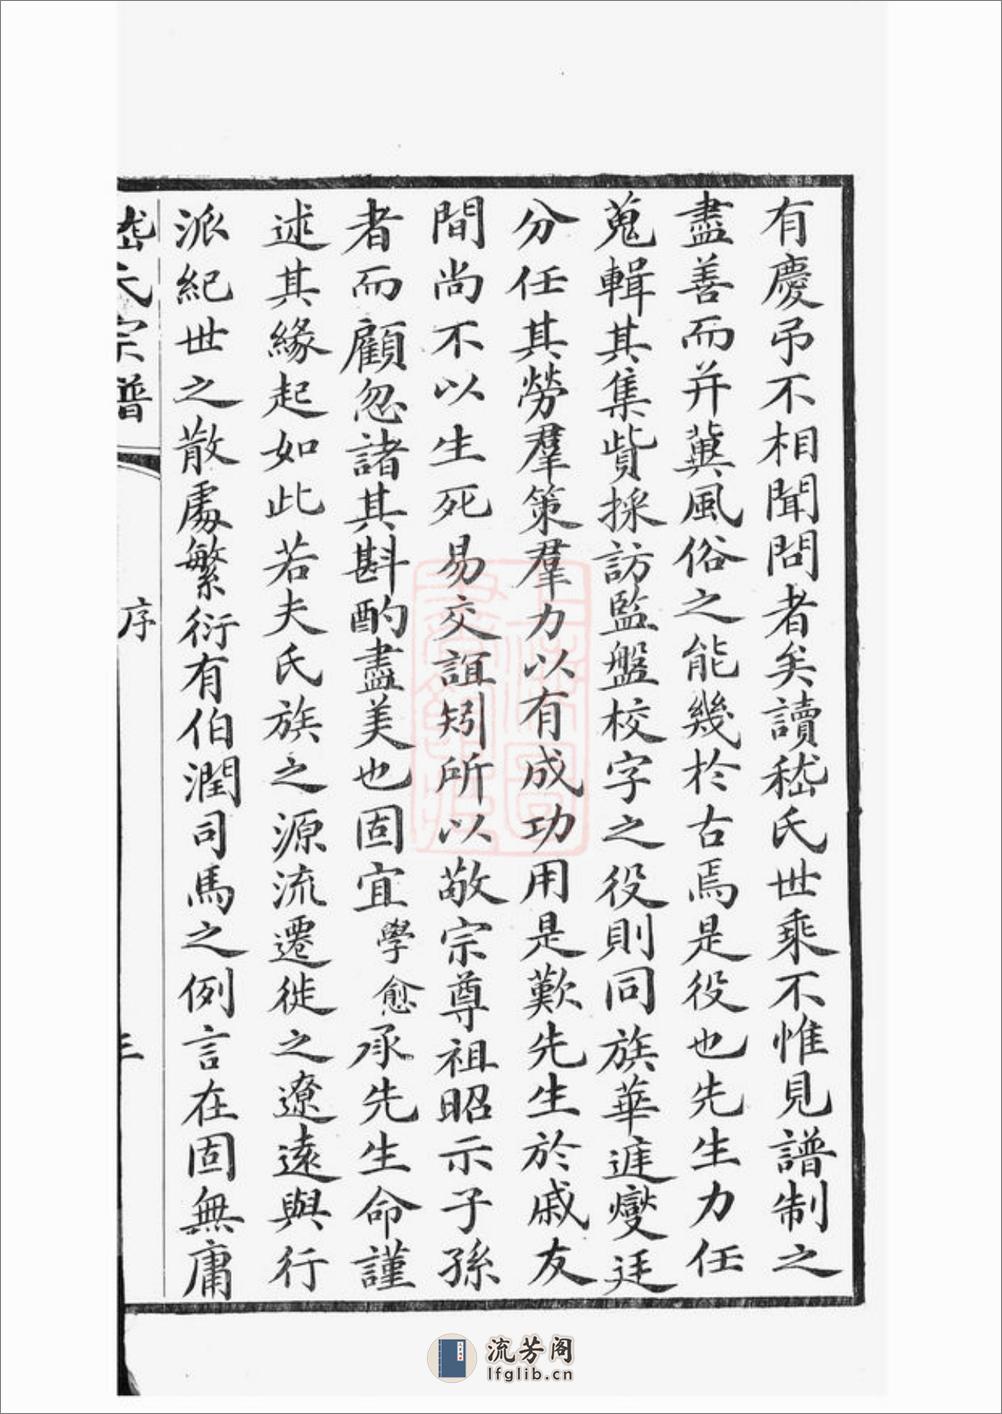 有慶弔不相聞問者矣讀嵇氏世乘不惟見譜制之
盡善而并冀風俗之能幾於古焉是役也先生力任
蒐輯其集貲採訪監盤校字之役則同族華進燮廷
分任其勞羣策羣力以有成功用是歎先生於戚友
間尚不以生死易交誼矧所以敬宗尊祖昭示子孫
者而顧忽諸其斟酌盡美也固宜學愈承先生命謹
述其緣起如此若夫氏族之源流遷徙之遼遠與行
派紀世之散處繁衍有伯潤司馬之例言在固無庸
嵇氏宗譜
序
三
上海圖書館藏
流芳阁
lfglib.cn